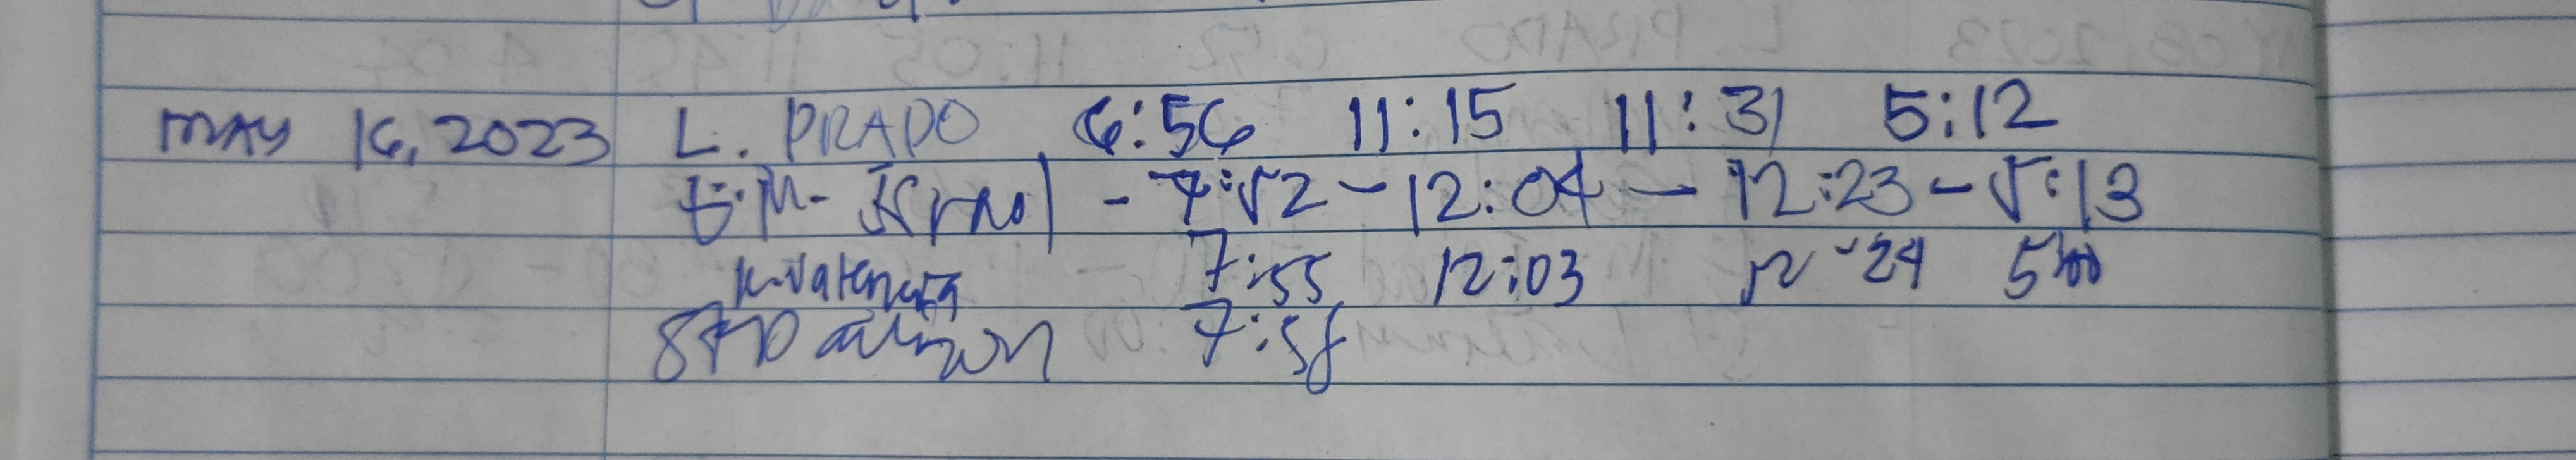 MAY 16, 2023 L. PRADO 6:56 11:15 11:31 5:12
E.M. - 7:52 - 12:04 - 12:23 - 5:13
K. Valencia 7:55 12:03 12-24 500
7:58